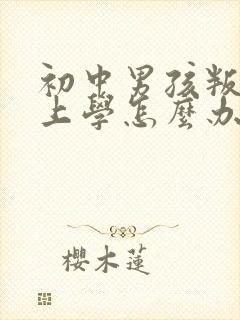 初中男孩叛
上學怎麼办
櫻木蓮